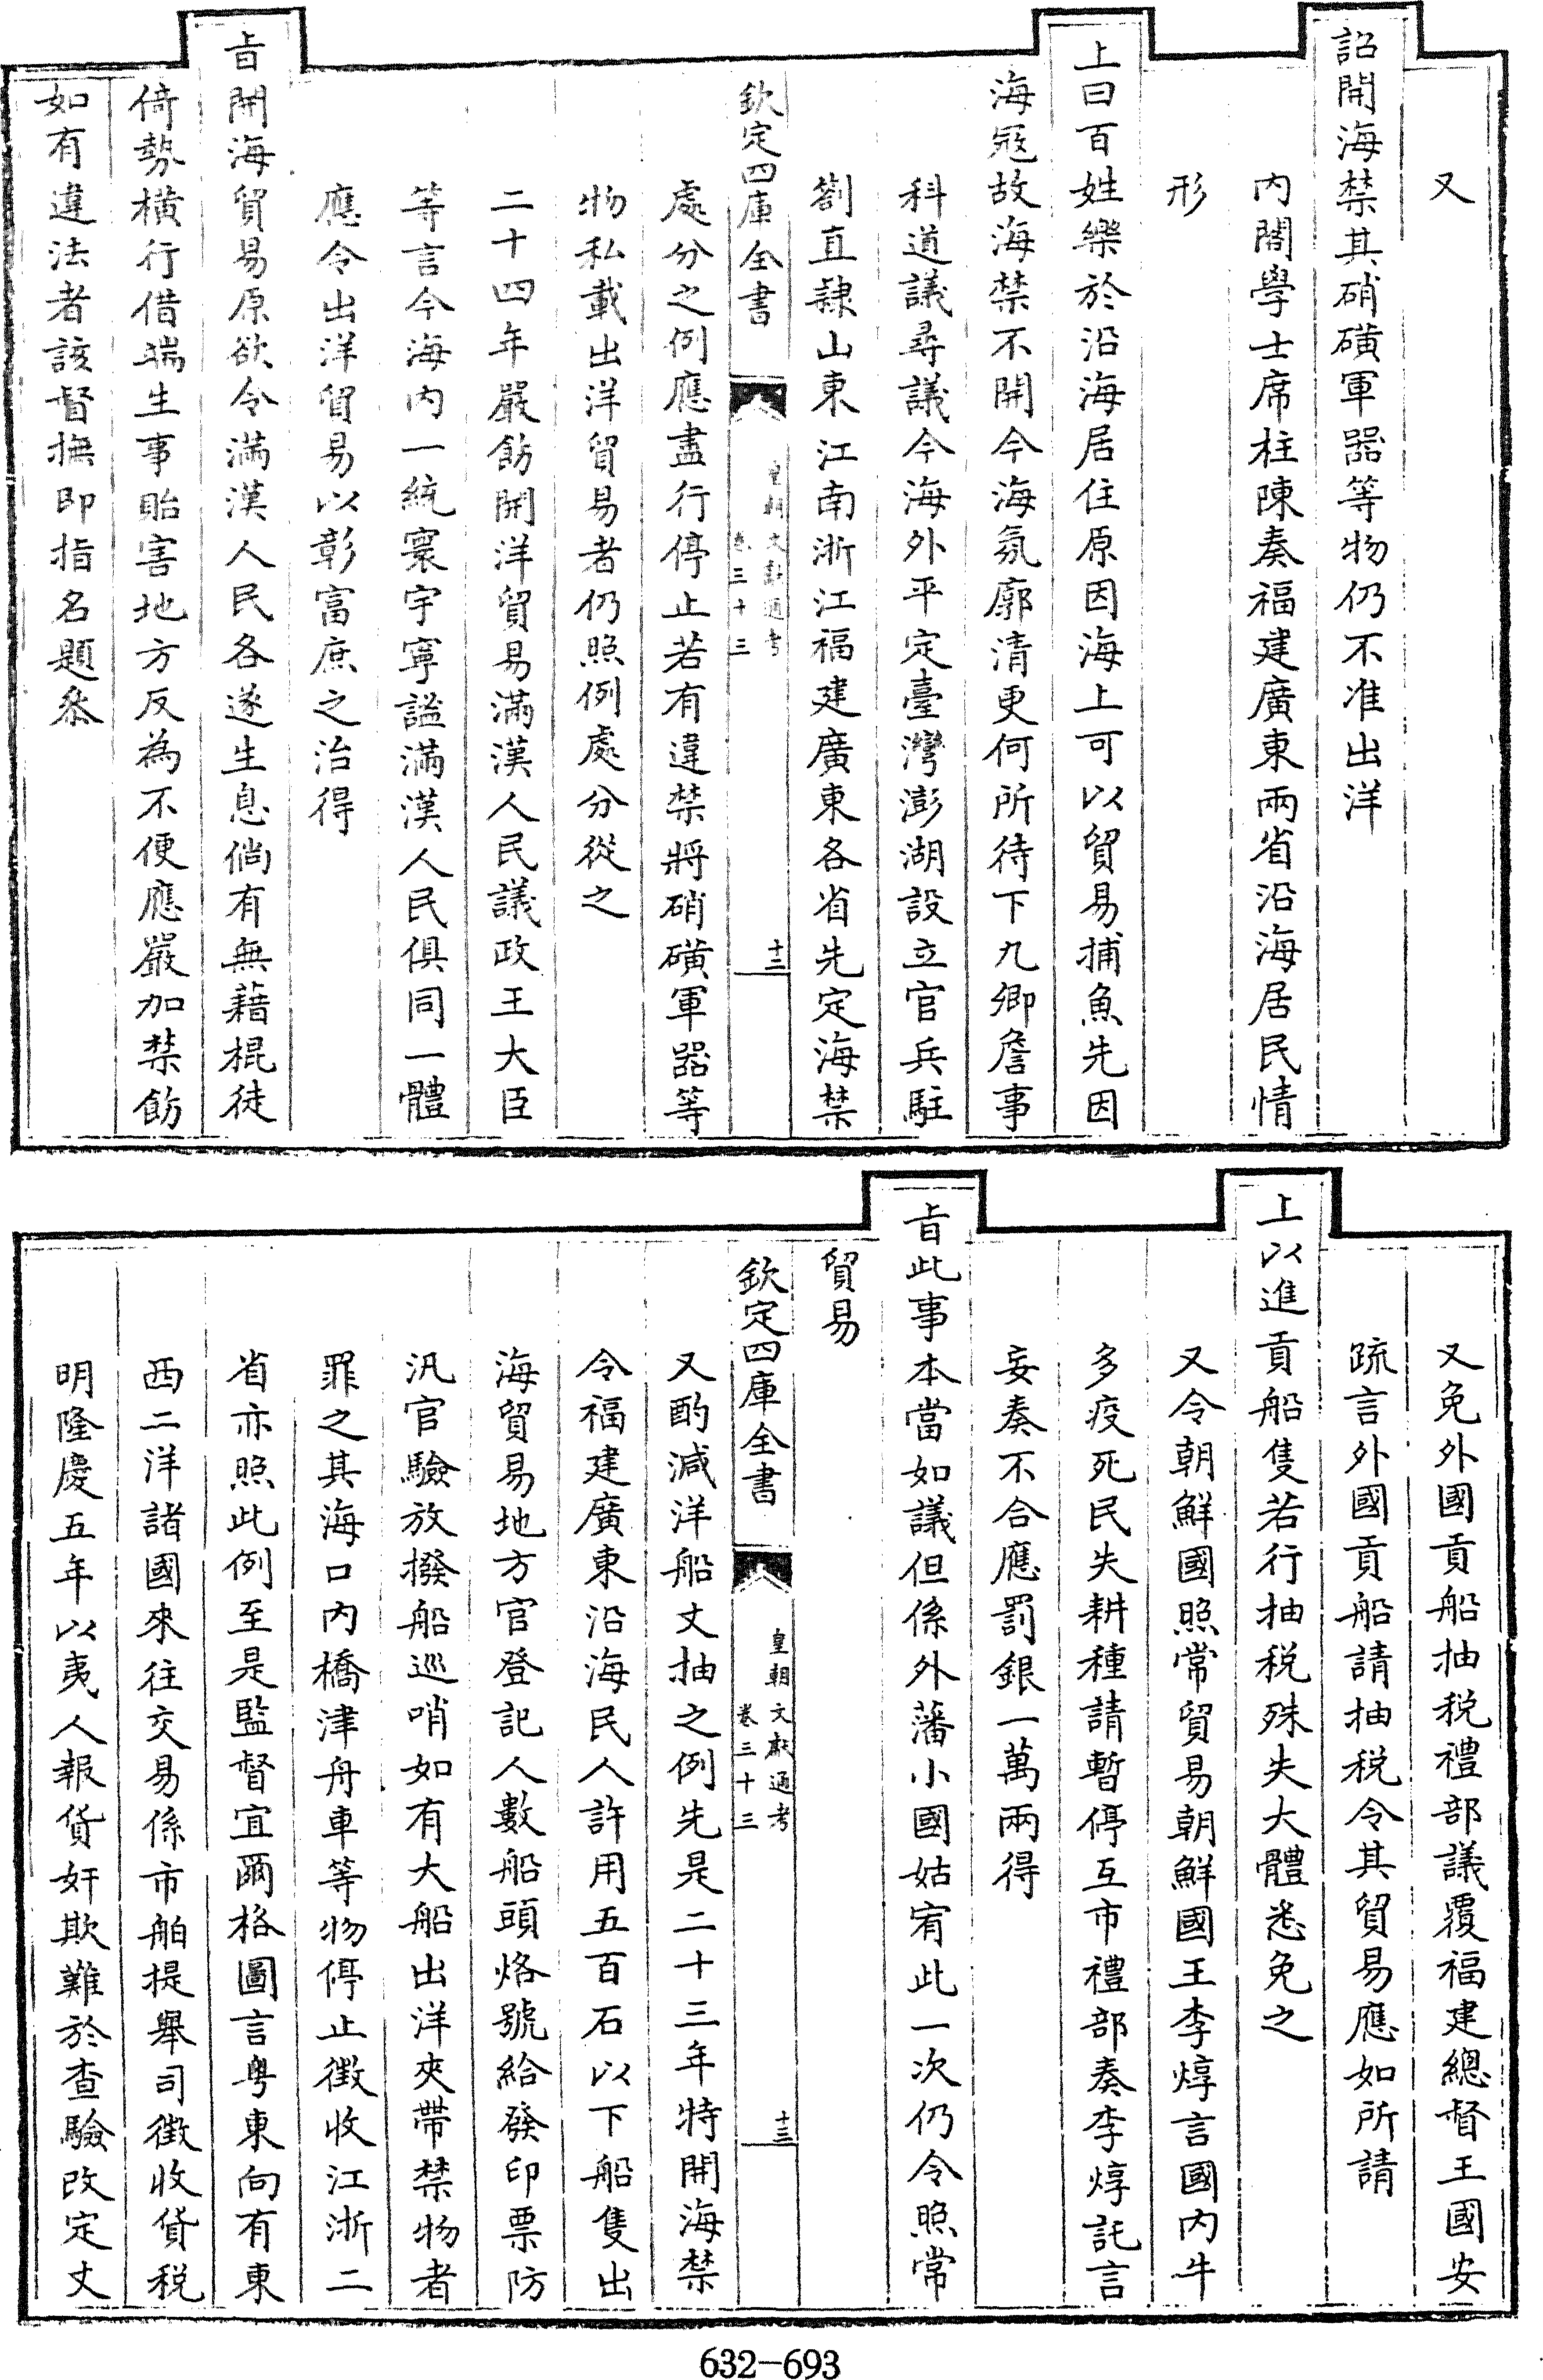 又
詔開海禁其硝磺軍器等物仍不准出洋
内閣學士席柱陳奏福建廣東兩省沿海居民情
形
上曰百姓樂於沿海居住原因海上可以貿易捕魚先因
海冦故海禁不開今海氛廓清更何所待下九卿詹事
科道議尋議今海外平定臺灣澎湖設立官兵駐
劄直隷山東江南浙江福建廣東各省先定海禁
欽定四庫全書
皇朝文獻通考
卷三十三
十二
處分之例應盡行停止若有違禁將硝磺軍器等
物私載出洋貿易者仍照例處分從之
二十四年嚴飭開洋貿易滿漢人民議政王大臣
等言今海内一統寰宇寧謐滿漢人民俱同一體
應令出洋貿易以彰富庶之治得
旨開海貿易原欲令滿漢人民各遂生息倘有無藉棍徒
倚勢横行借端生事貽害地方反為不便應嚴加禁飭
如有違法者該督撫即指名題叅
又免外國貢船抽税禮部議覆福建總督王國安
疏言外國貢船請抽税令其貿易應如所請
上以進貢船隻若行抽税殊失大體悉免之
又令朝鮮國照常貿易朝鮮國王李焞言國内牛
多疫死民失耕種請暫停互市禮部奏李焞託言
妄奏不合應罰銀一萬兩得
旨此事本當如議但係外藩小國姑宥此一次仍令照常
貿易
欽定四庫全書
皇朝文獻通考
卷三十三
十三
又酌減洋船丈抽之例先是二十三年特開海禁
令福建廣東沿海民人許用五百石以下船隻出
海貿易地方官登記人數船頭烙號給發印票防
汛官驗放撥船巡哨如有大船出洋夾帶禁物者
罪之其海口内橋津舟車等物停止徵收江浙二
省亦照此例至是監督宜爾格圖言粤東向有東
西二洋諸國來往交易係市舶提舉司徵收貨税
明隆慶五年以夷人報貨奸欺難於查驗改定丈
632-693